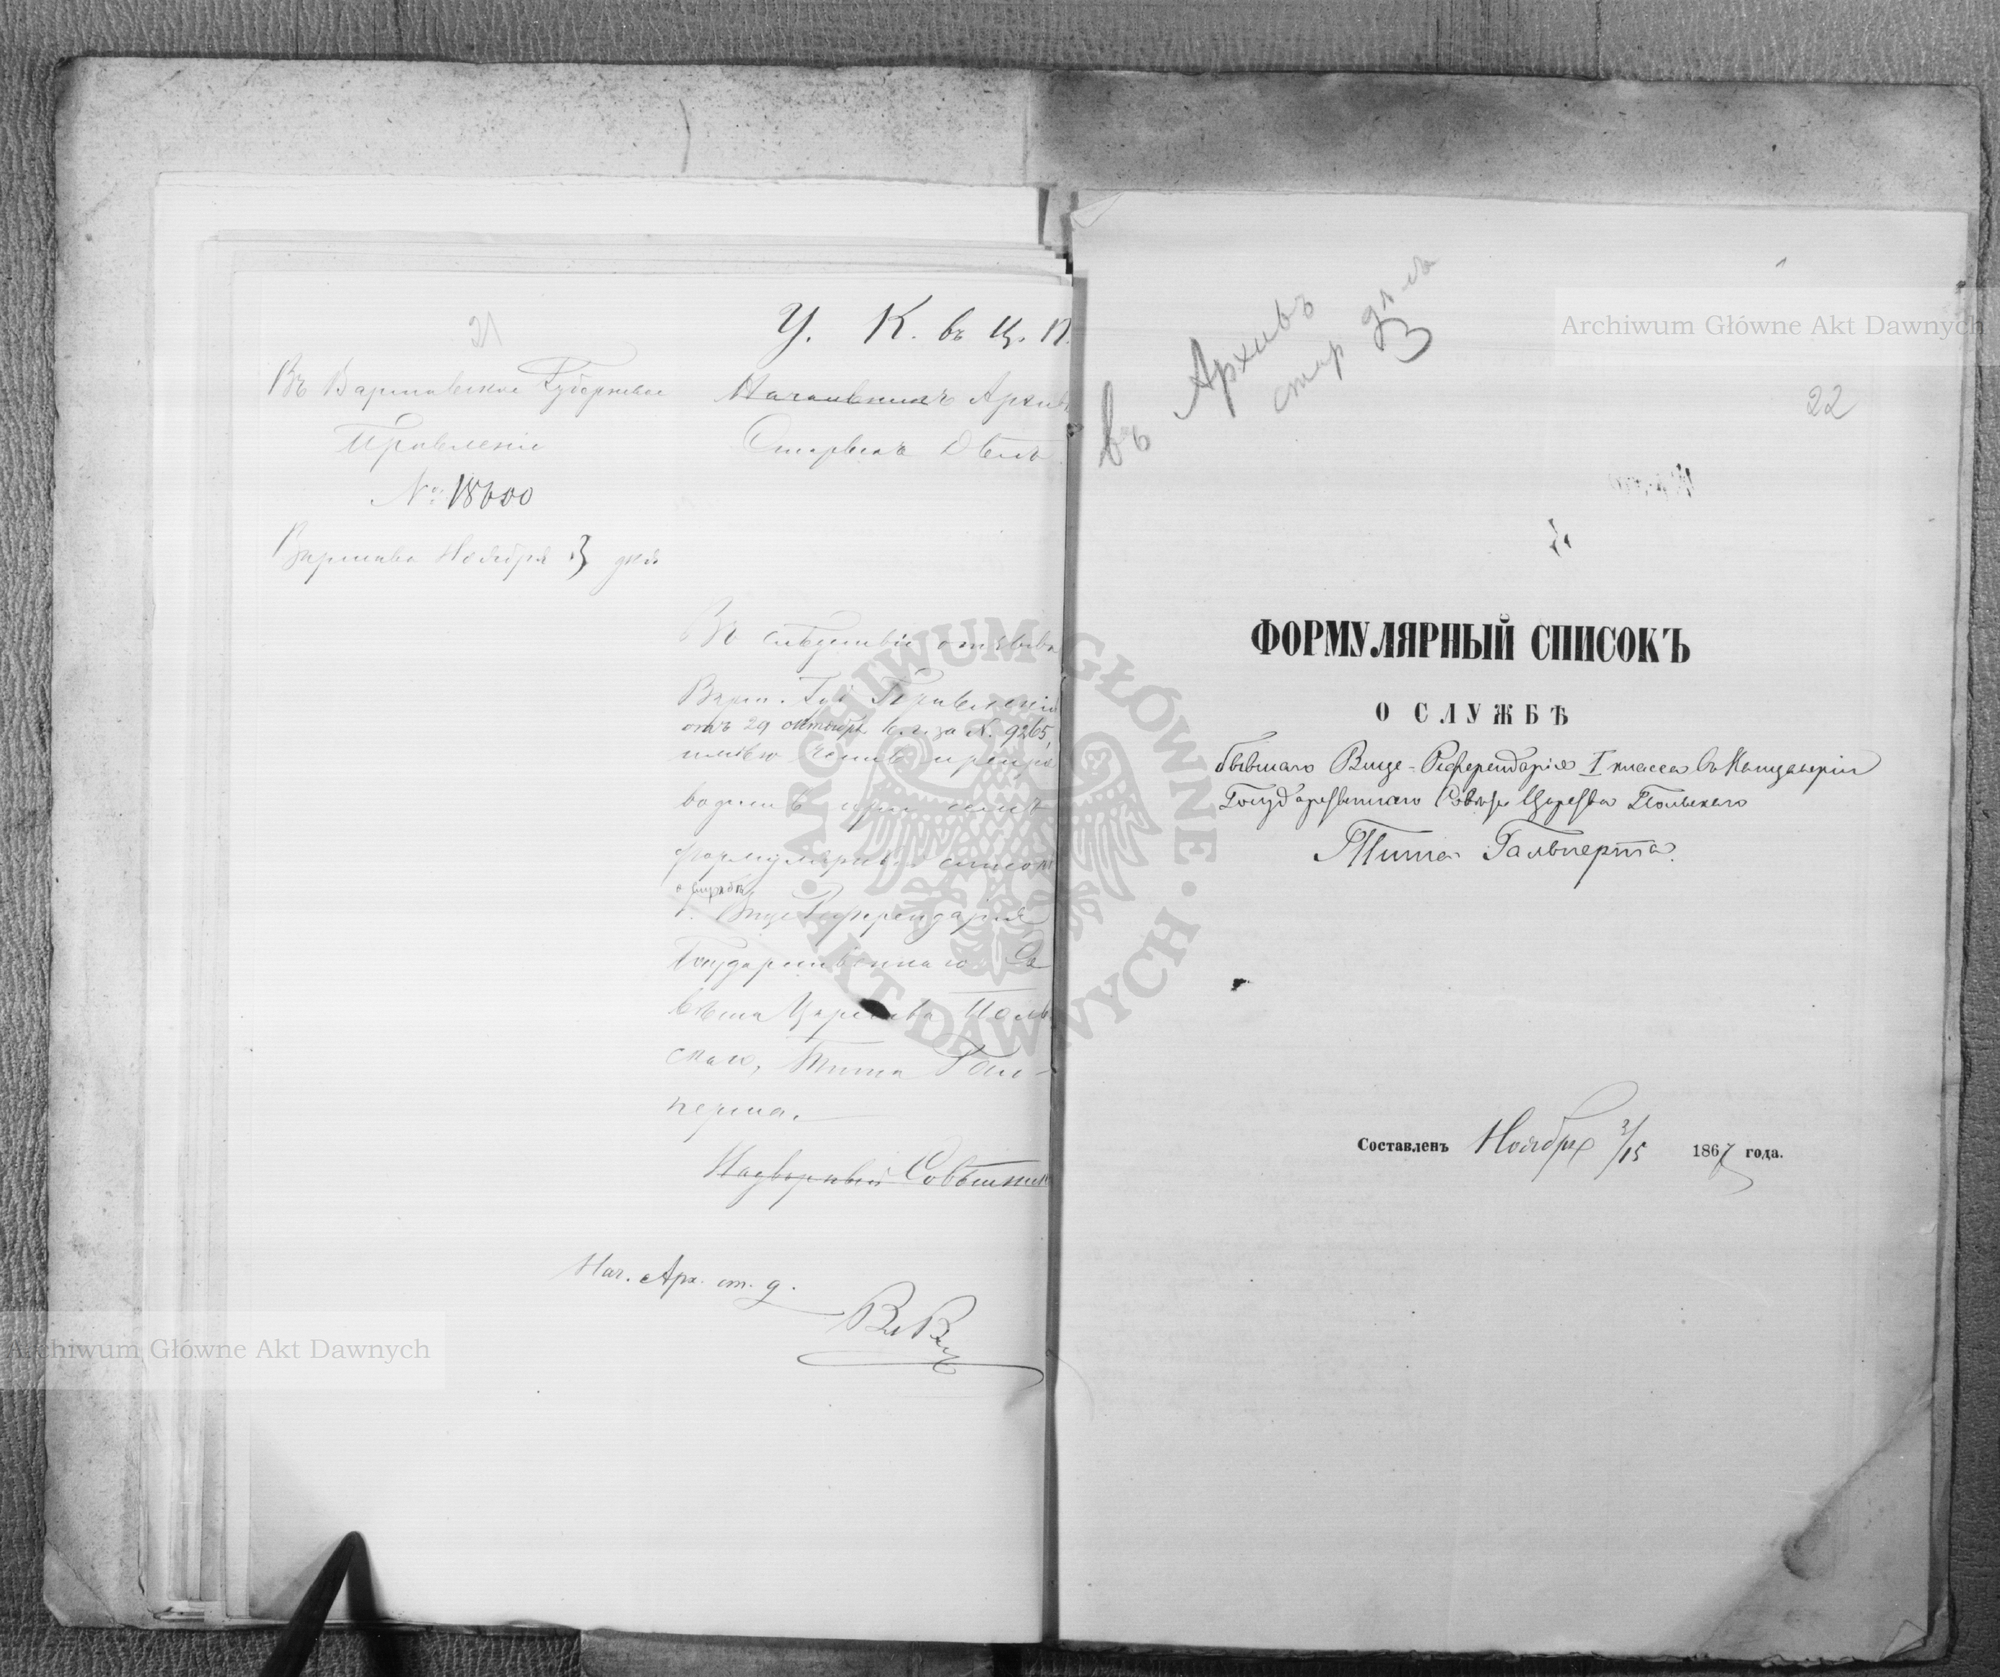 21
У. К. въ Ц. П.
Въ Варшавское Губернское
Правленіе
№ 18600
Варшава Ноября 3 дня
Начальникъ Архива
Старыхъ Дѣлъ
Въ слѣдствіе отзыва
Варш. Губ. Правленія
отъ 29 Октября к. г. за N. 9265,
имѣю честь препро
водить при семъ
формулярный списокъ
о службѣ
б. Вице Референдарія
Государственнаго Со
вѣта Царства Поль
скаго, Тита Галь-
перта.
Надворный Совѣтникъ
Нач. Арх. ст. д.
Archiwum Główne Akt Dawnych
ARCHIWUM GŁÓWNE AKT DAWNYCH
Archiwum Główne Akt Dawnych
въ Архивъ
стар дѣлъ
3
22
ФОРМУЛЯРНЫЙ СПИСОКЪ
О СЛУЖБѢ
бывшаго Вице-Референдарія I класса въ Канцеляріи
Государственнаго Совѣта Царства Польскаго
Тита Гальперта.
Составленъ Ноября 3/15 1867 года.